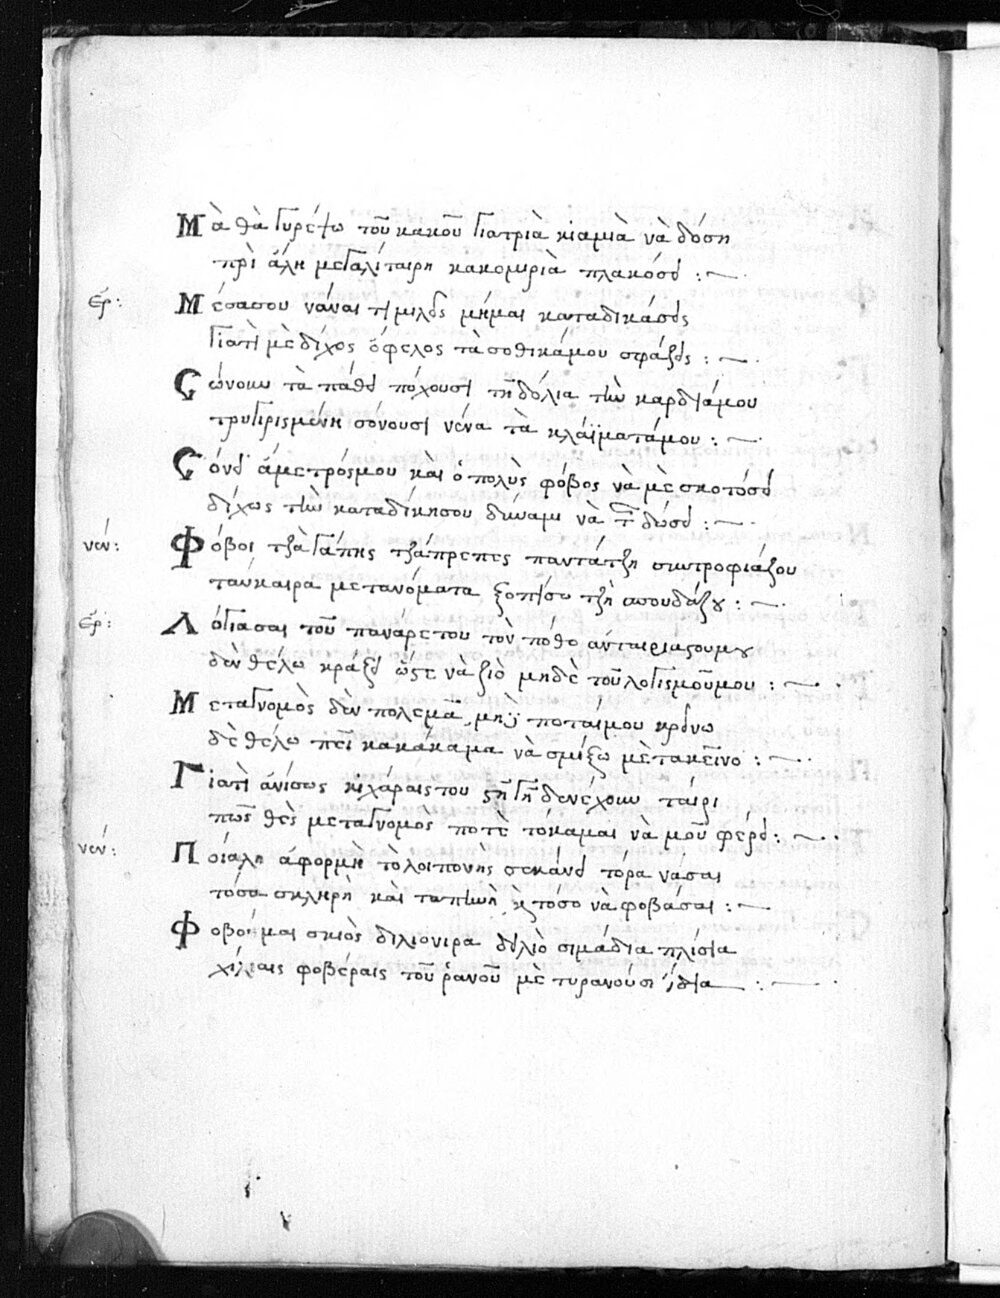 Μὰ θὰ γυρέψω τοῦ κακοῦ γιατριὰ κιαμιὰ νὰ δόση
πρὶ ἄλη μεγαλίταιρη κακομιριὰ πλακόσϗ :~
ἐρ: Μέσασου νάναι τί μιλᾶς μήμαι καταδικάσϗς
γιατὶ μὲ δίχος ὄφελος τὰ σοθικάμου σφάζϗς :~
Σώνουν τὰ πάθϗ πόχουσι τὴ δόλια τὴν καρδιάμου
τρυγιρισμένη σόνουσι νένα τὰ κλάϊματάμου :~
Σόνϗ ἄμετρόςμου καὶ ὁ πολὺς φόβος νὰ μὲ σκοτόσϗ
δίχως τὴν καταδίκησου δύναμι νὰ τ̄ δώσϗ :~
νέν: Φόβοι τζἀγάπης τζάπρεπες παντάτζη συντροφιάζου
ταύκαιρα μετανόματα ξοπίσω τζὴ σπουδάζου :~
ἐρ: Λόγιασαι τοῦ παναρετου τὸν πόθο ἀνταιριαζουμου
δὲν θέλω κράξϗ ὥςε νὰ ζιὸ μηδὲ τοῦ λογισμοῦμου :~
Μεταγνομὸς δὲν πολεμᾶ, μηδ ποταίμου κρίνω
δὲ θέλω πεῖ κακάκαμα νὰ σμίξω μὲ τακεῖνο :~
Γιατὶ ἀνίσως κιχάραιςτου ςὴ γῆ δενέχουν ταιρι
πῶς θὲς μεταγνομὸς ποτὲ τόκαμαι νὰ μοῦ φέρϗ :~
νέν: Ποιάλη ἀφορμὴ τὸ λοιπονὴς σεκάνϗ τόρα νάσαι
τόσα σκληρὴ καὶ ταπινὴ κ̀ τόσο νὰ φοβᾶσαι :~
Φοβοῦμαι σκιὸς διλιόνιρα δυλιὸ σιμάδια πλίσια
χίλιαις φοβέραις τοῦ ρανοῦ μὲ τυρανούσι ἴδια :~